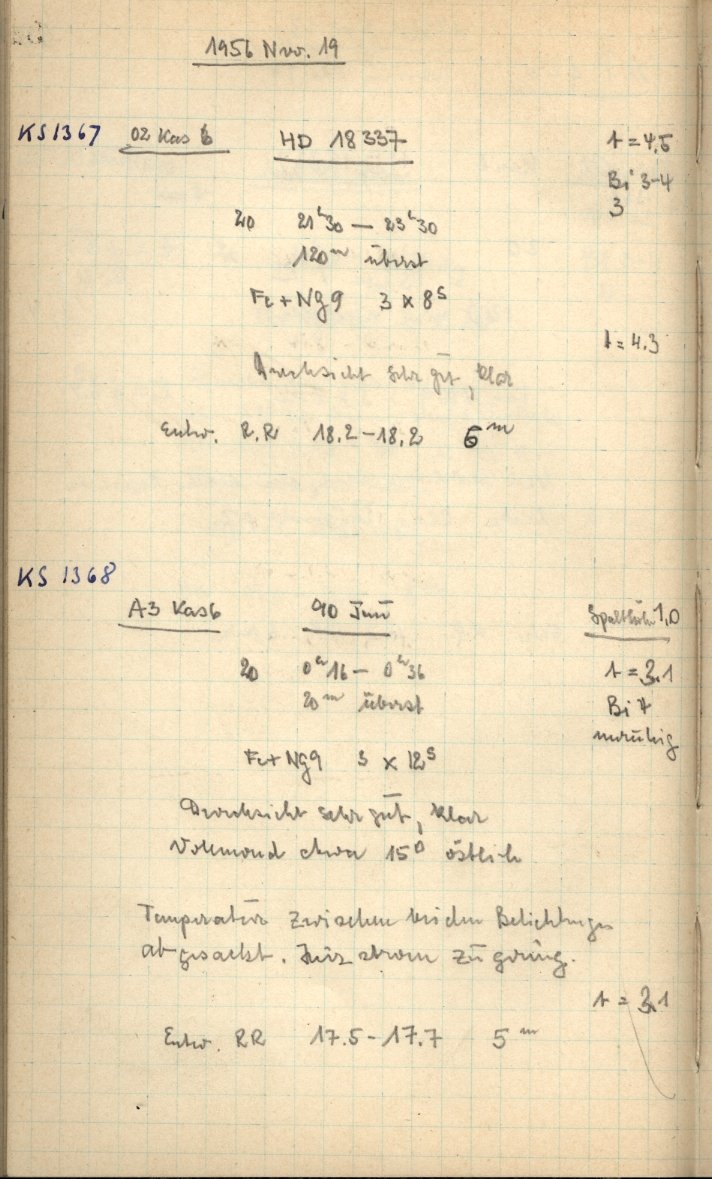 1956 Nov. 19
KS 1367 02 Kas 6 HD 18337 t = 4,5
Bi 3-4
3
20 21ʰ30 — 23ʰ30
120ᵐ überst
Fe + Ng 9 3 x 8ˢ
t = 4.3
Durchsicht sehr gut, klar
Entw. R.R 18,2 - 18,2 6ᵐ
KS 1368
A3 Kas 6 Spalthöhe 1,0
20 0ʰ16 — 0ʰ36 t = 3,1
20ᵐ überst Bi
unruhig
Fe + Ng 9 3 x 12ˢ
Durchsicht sehr gut, klar
Vollmond etwa 15° östlich
Temperatur zwischen beiden Belichtungen
abgesackt. Heizstrom zu gering.
t = 3,1
Entw. RR 17.5 - 17.7 5ᵐ